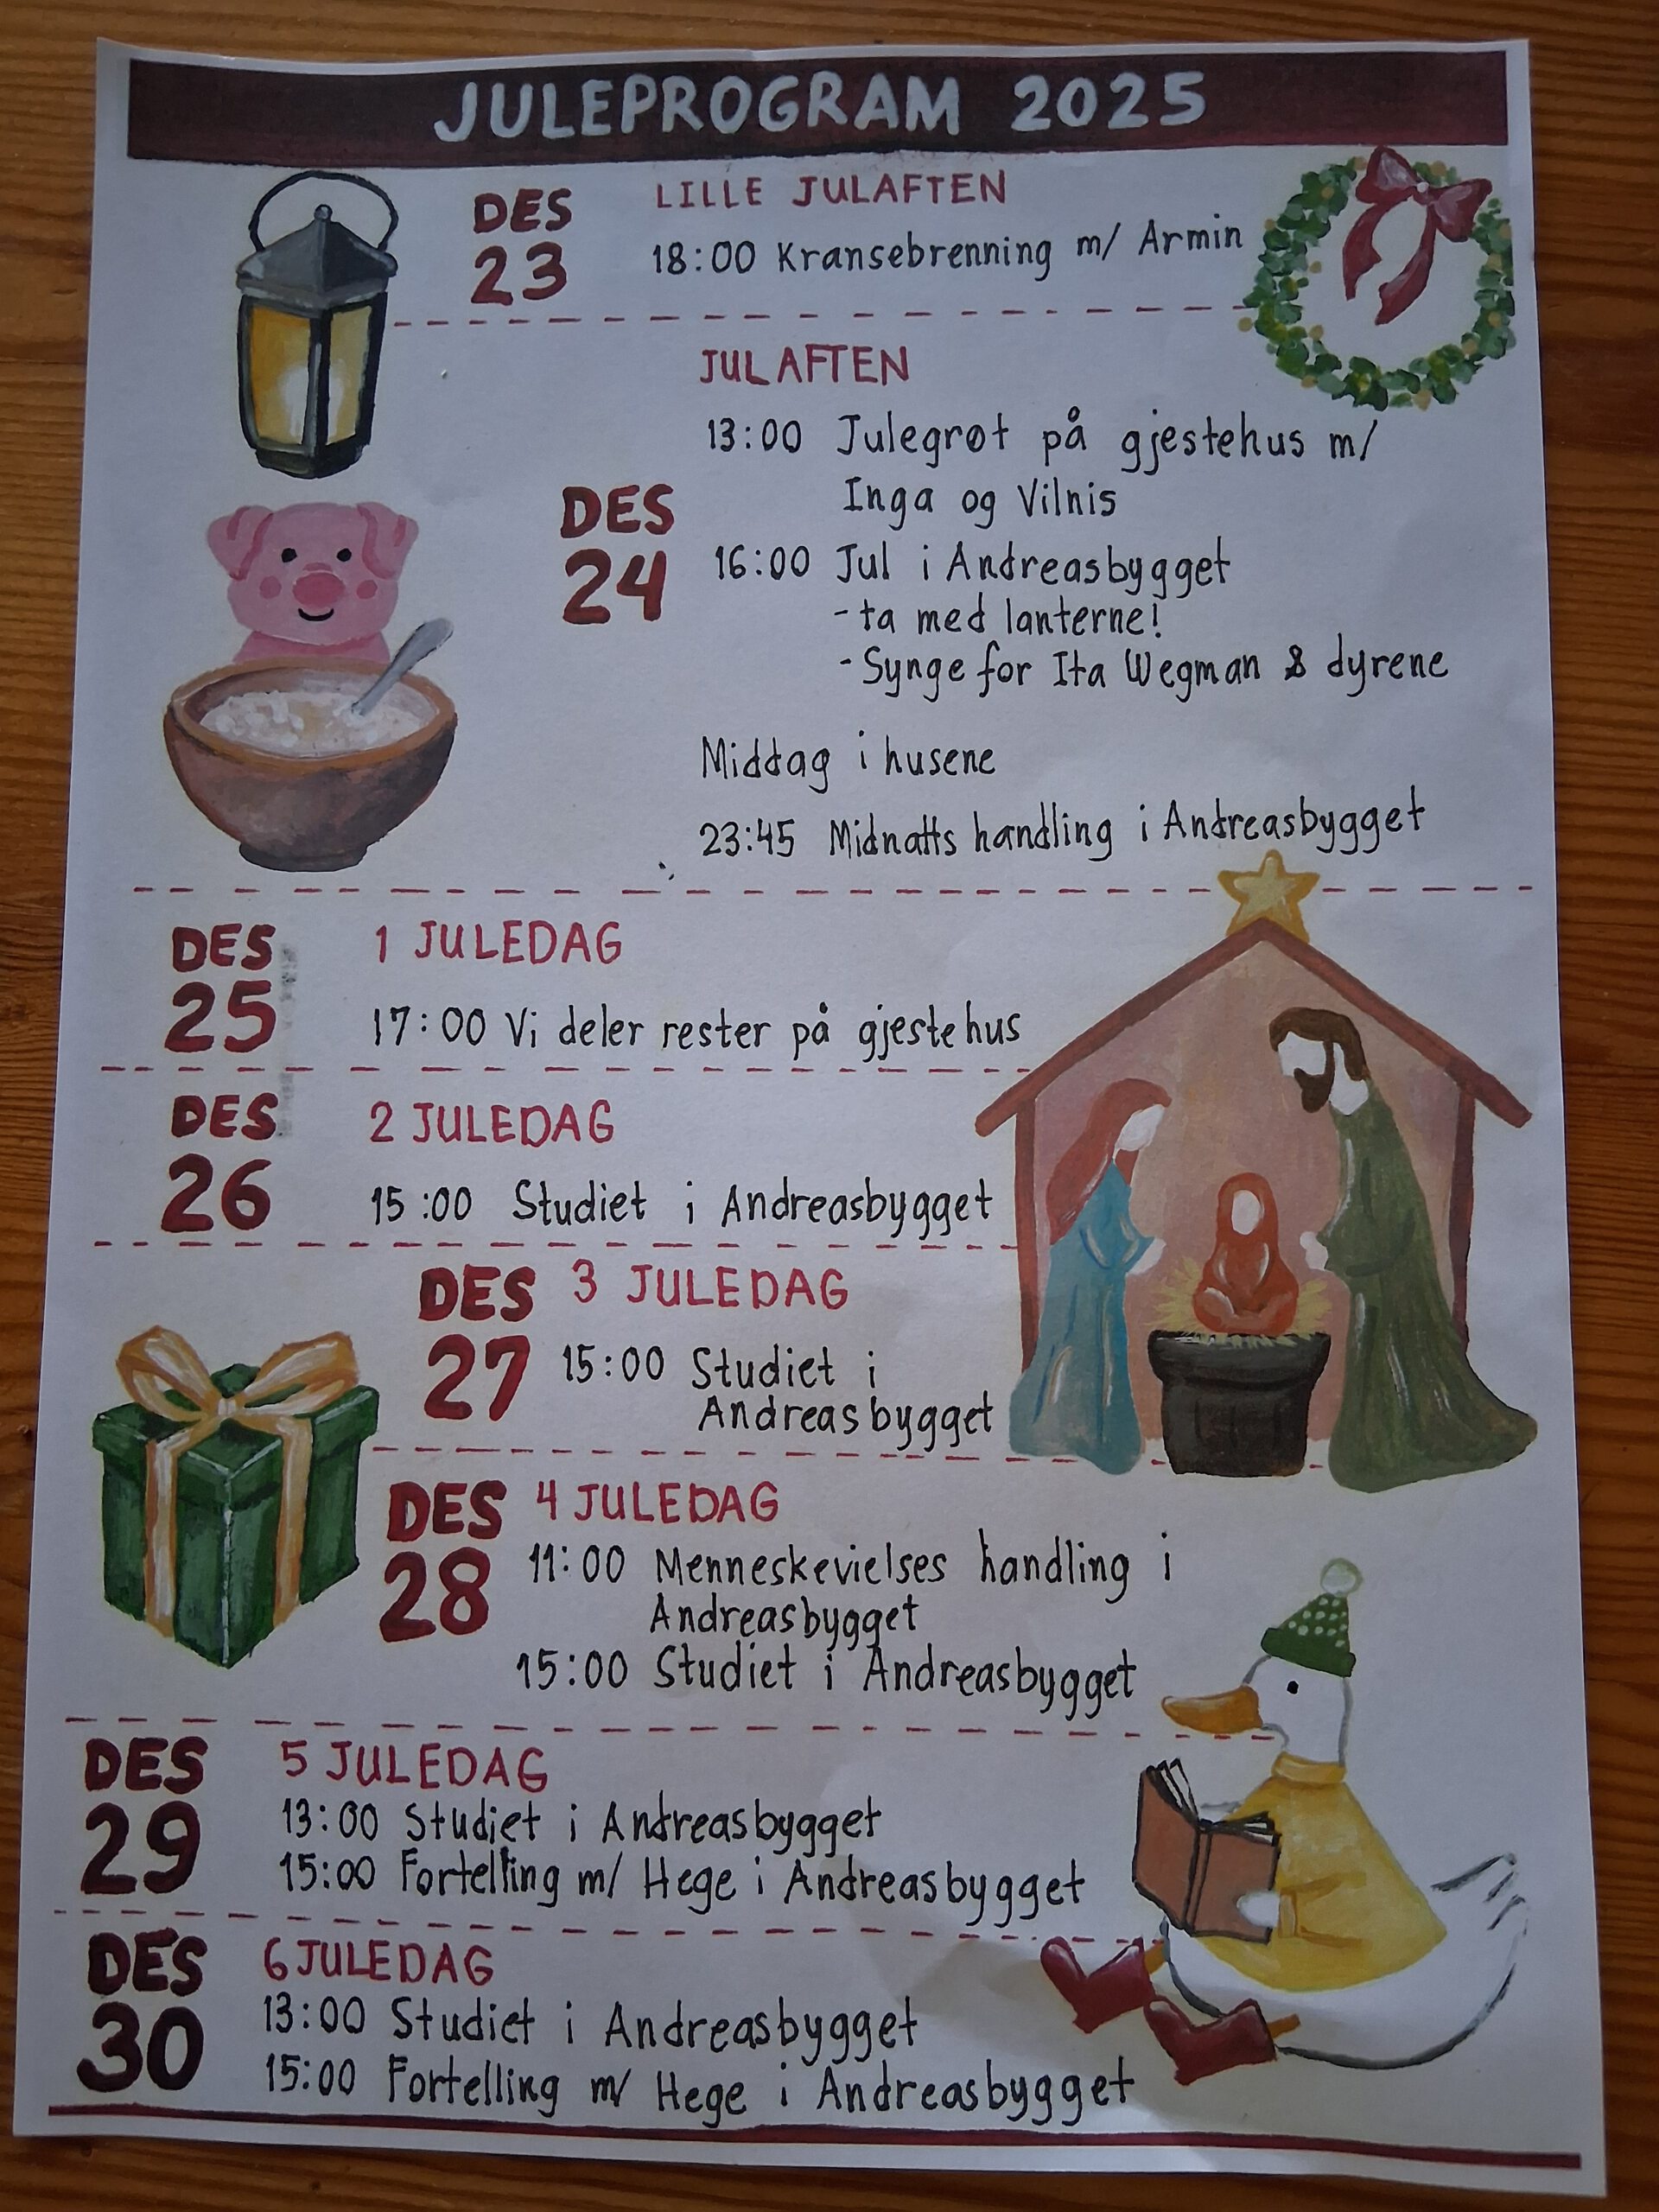 JULEPROGRAM 2025
DES
23
LILLE JULAFTEN
18:00 Kransebrenning m/ Armin
DES
24
JULAFTEN
13:00 Julegrøt på gjestehus m/
Inga og Vilnis
16:00 Jul i Andreasbygget
-ta med lanterne!
-Synge for Ita Wegman & dyrene
Middag i husene
23:45 Midnatts handling i Andreasbygget
DES
25
1 JULEDAG
17:00 Vi deler rester på gjestehus
DES
26
2 JULEDAG
15:00 Studiet i Andreasbygget
DES
27
3 JULEDAG
15:00 Studiet i
Andreasbygget
DES
28
4 JULEDAG
11:00 Menneskevielses handling i
Andreasbygget
15:00 Studiet i Andreasbygget
DES
29
5 JULEDAG
13:00 Studiet i Andreasbygget
15:00 Fortelling m/ Hege i Andreasbygget
DES
30
6 JULEDAG
13:00 Studiet i Andreasbygget
15:00 Fortelling m/ Hege i Andreasbygget